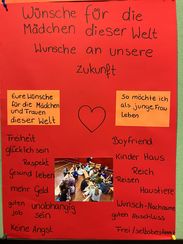 Wünsche für die
Mädchen dieser Welt
Wunsche an unsere
zukunft
Eure Wünsche
für die Mädchen
und Frauen
dieser Welt
So möchte ich
als junge Frau
Leben
Freiheit
glücklich sein
Respekt
Gesund Leben
mehr Geld
guten job
unabhängig sein
Keine Angst
Boyfriend
Kinder Haus
Reich
Reisen
Haustiere
Wunsch-Nachname
guten Abschluss
Frei/selbstbestimmt